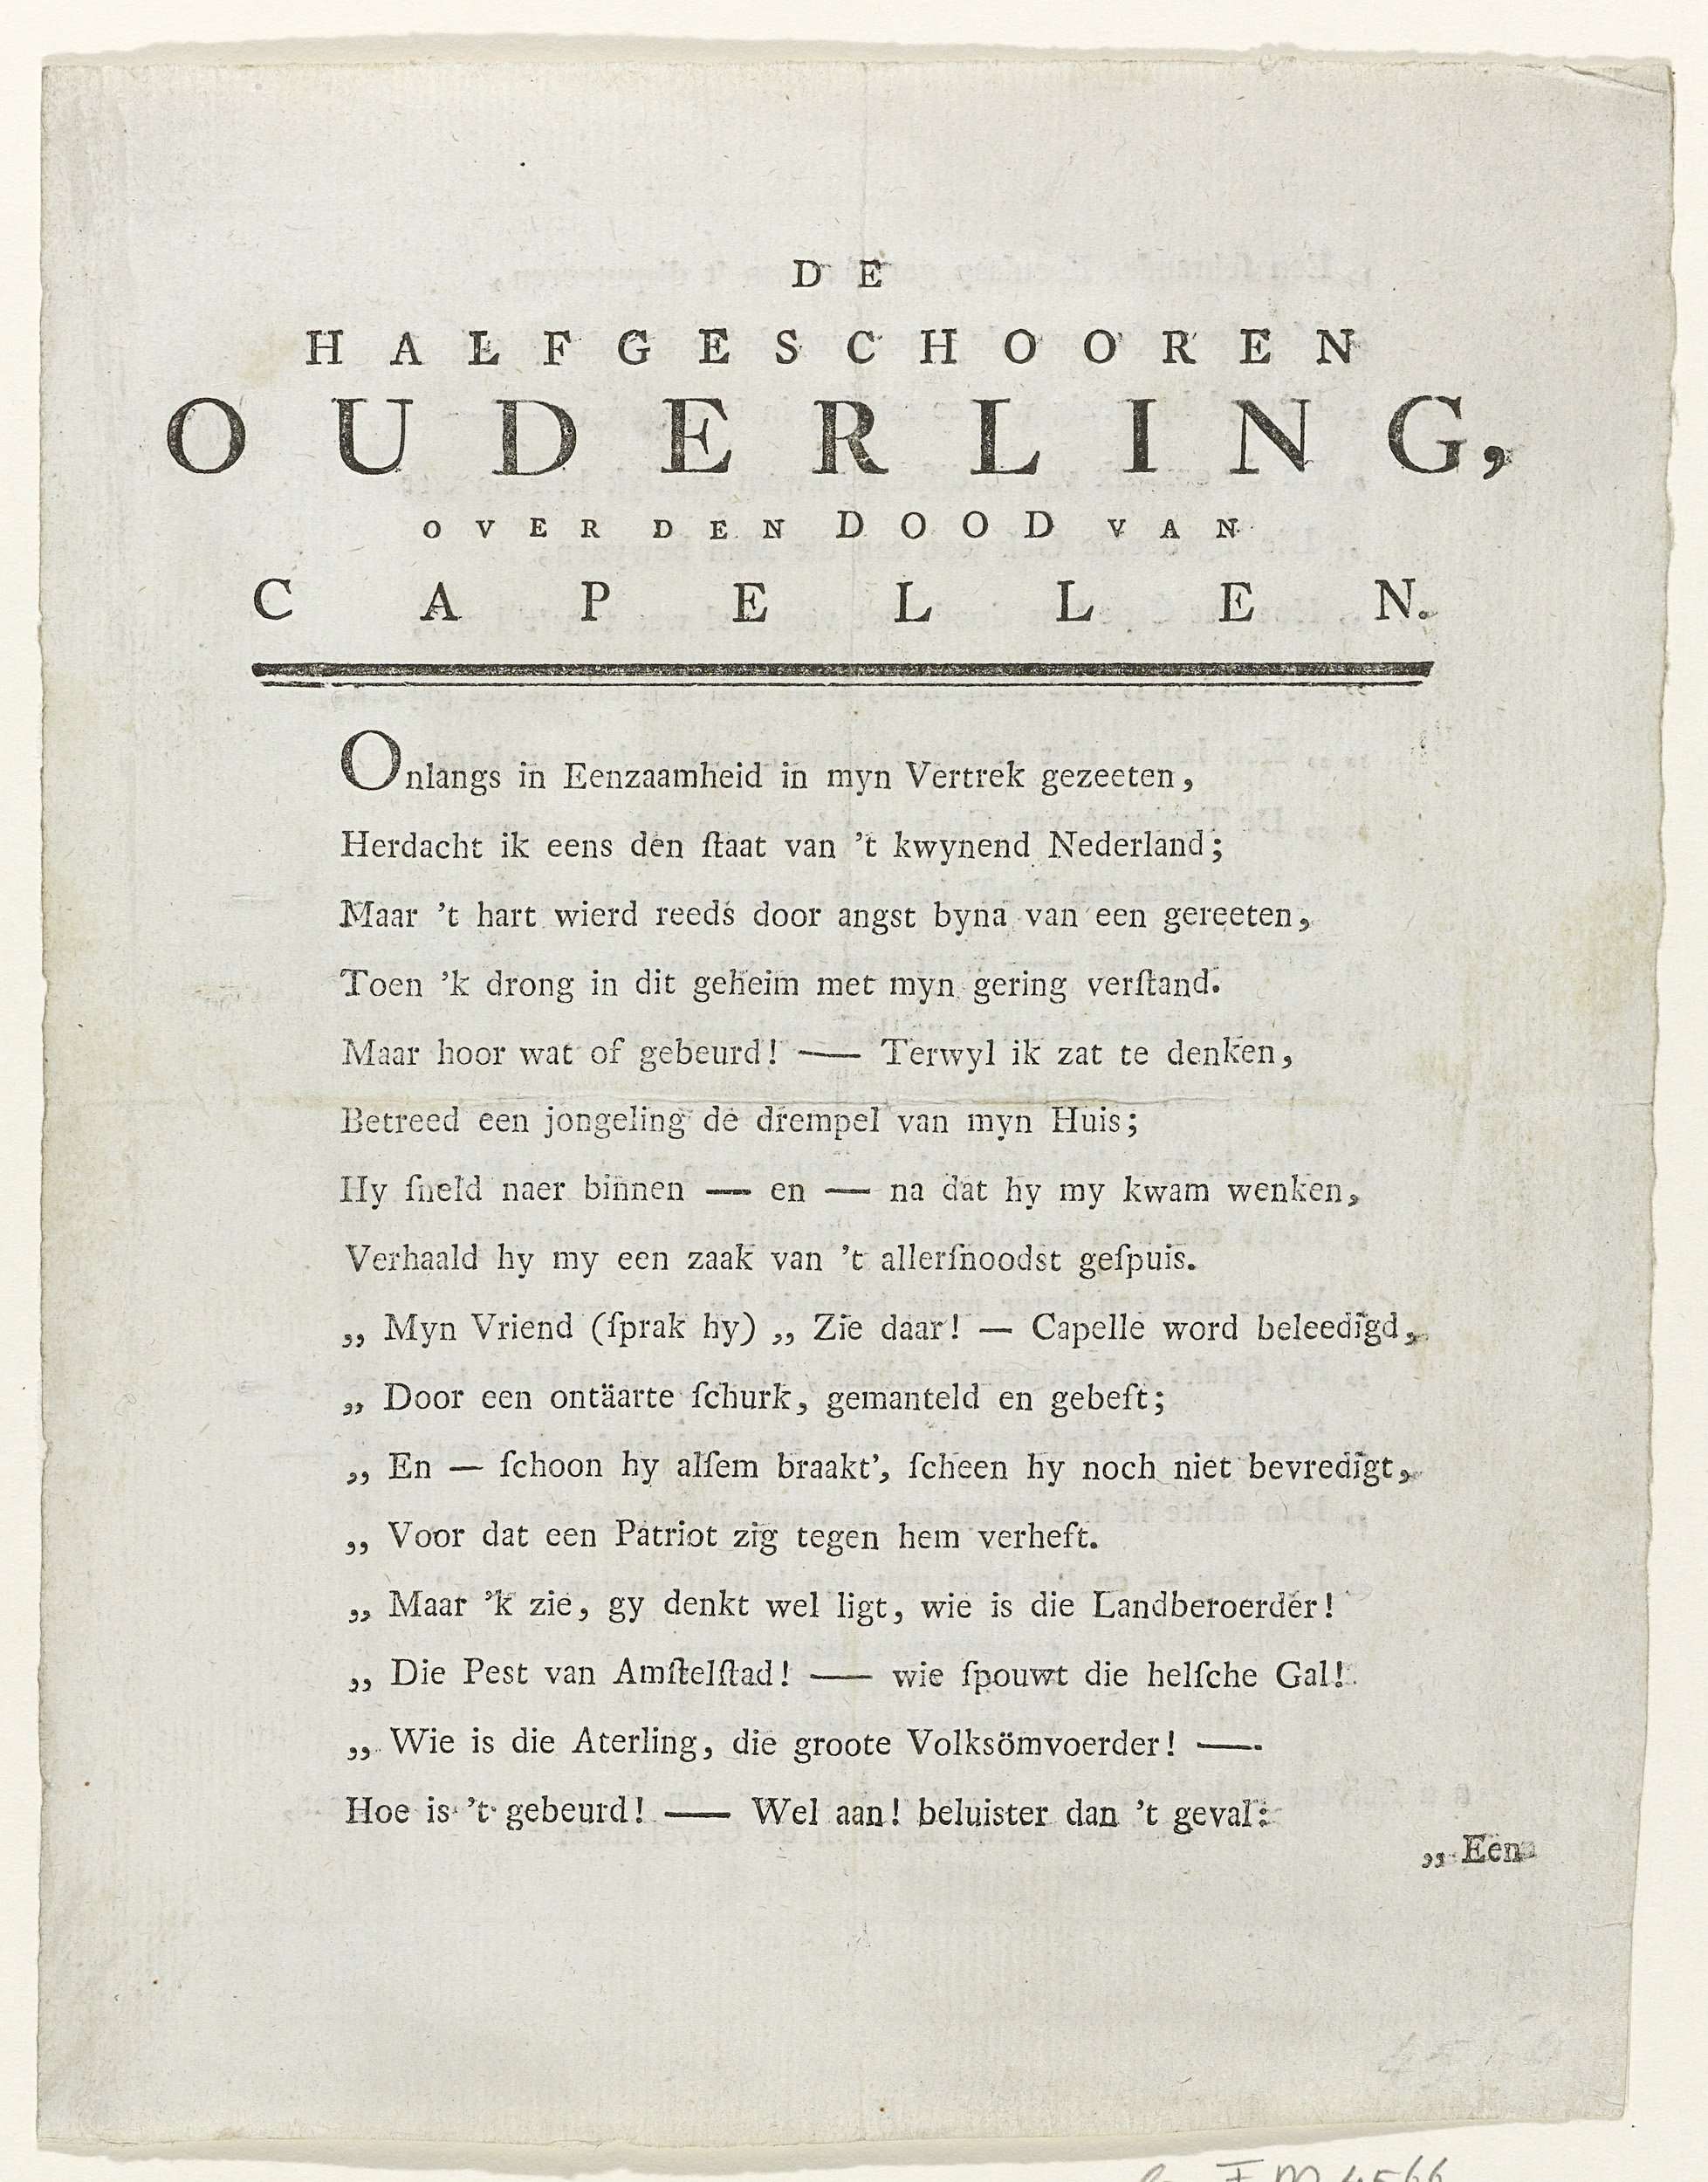 DE
HALFGESCHOOREN
OUDERLING,
OVER DEN DOOD VAN
CAPELLEN.
Onlangs in Eenzaamheid in myn Vertrek gezeeten,
Herdacht ik eens den ſtaat van ’t kwynend Nederland;
Maar ’t hart wierd reeds door angst byna van een gereeten,
Toen ’k drong in dit geheim met myn gering verſtand.
Maar hoor wat of gebeurd! —— Terwyl ik zat te denken,
Betreed een jongeling de drempel van myn Huis;
Hy ſneld naer binnen — en — na dat hy my kwam wenken,
Verhaald hy my een zaak van ’t allerſnoodst geſpuis.
„ Myn Vriend (ſprak hy) „ Zie daar! — Capelle word beleedigd,
„ Door een ontäarte ſchurk, gemanteld en gebeft;
„ En — ſchoon hy alſem braakt’, ſcheen hy noch niet bevredigt,
„ Voor dat een Patriot zig tegen hem verheft.
„ Maar ’k zie, gy denkt wel ligt, wie is die Landberoerder!
„ Die Pest van Amſtelſtad! —— wie ſpouwt die helſche Gal!
„ Wie is die Aterling, die groote Volksömvoerder! ——
Hoe is ’t gebeurd! —— Wel aan! beluister dan ’t geval:
„ Een
FM 4566